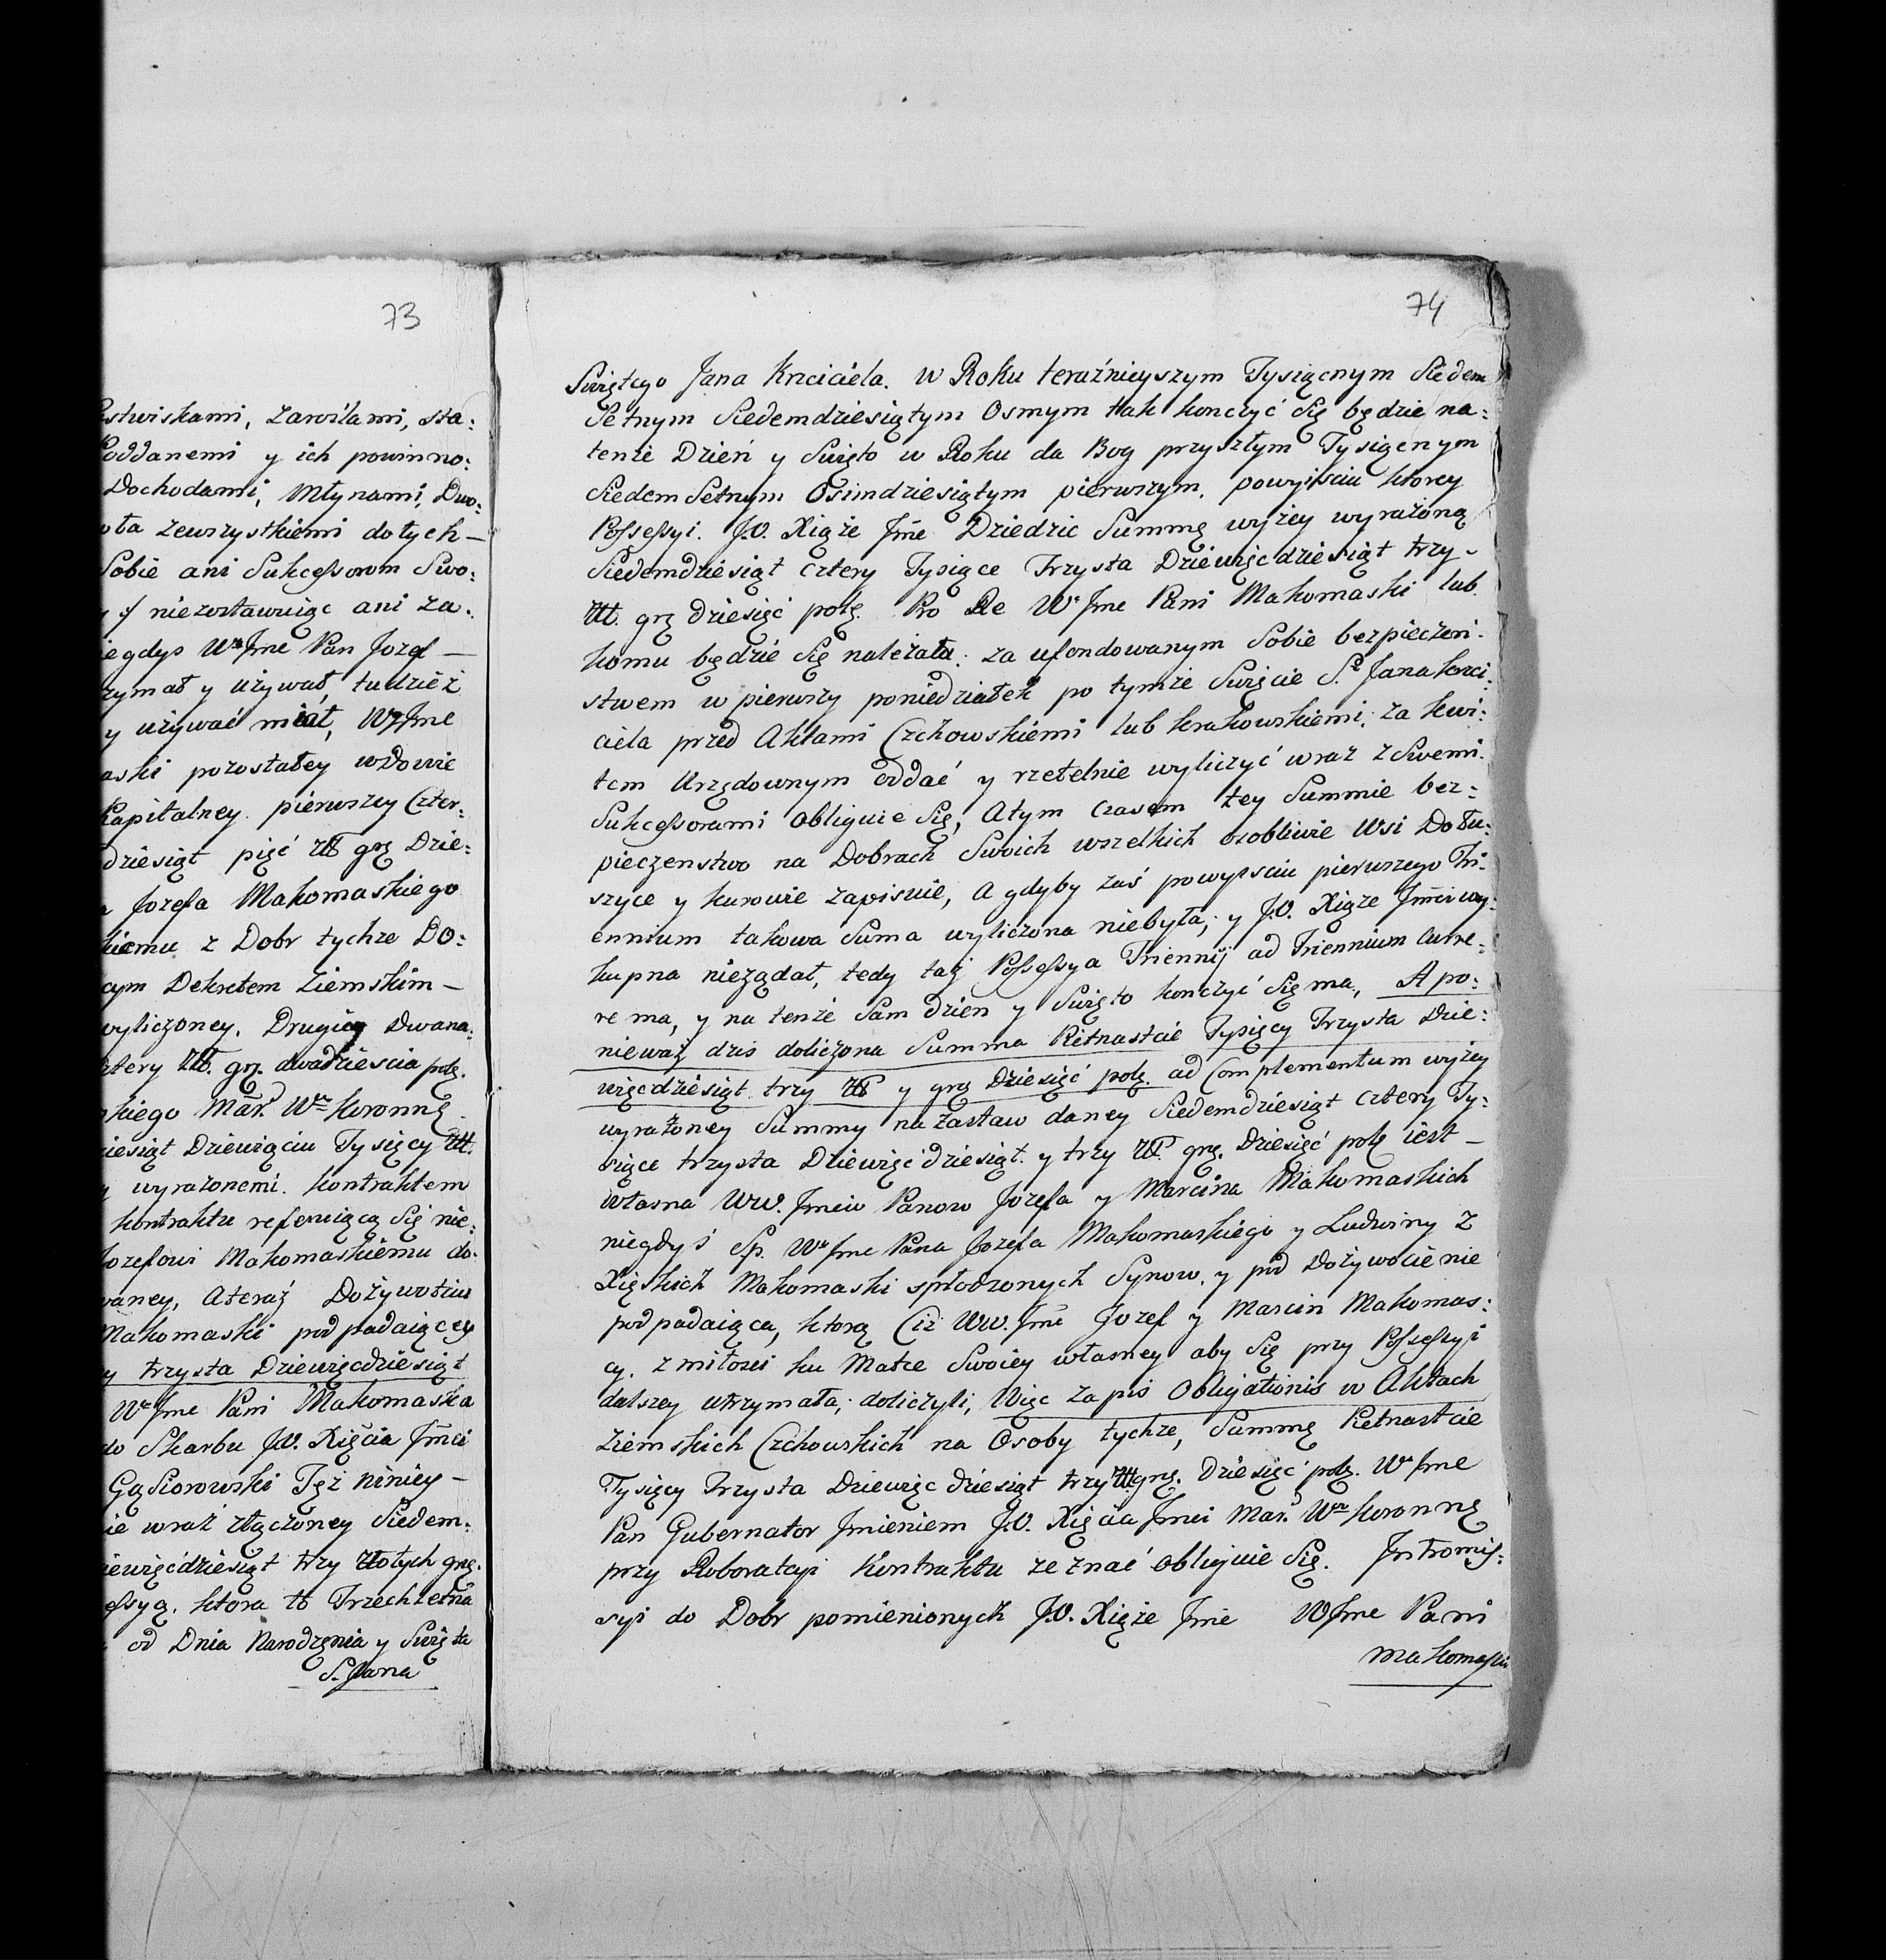 73
stwiskami, zarośłami, sta:
Poddanemi y ich powinno:
Dochodami, Młynami, Dwo:
ota zewszystkiemi dotych-
Sobie ani Sukcessorom Swo:
niezostawuiąc ani za:
iegdys Wo Jme Pan Jozef —
zymał y używał, tudzież
y używać miał, W Jme
aski pozostałey wdowie
Kapitalney pierwszey Czter:
dziesiąt pięć Złł grę Dzie:
Jozefa Makomaskiego
kiemu z Dobr tychże Do:
cym Dekretem Ziemskim —
wyliczoney, Drugiey Dwana:
cztery Złł. grę. dwadzieścia polę.
skiego Mar. Wo Koronnę
ziesiąt Dziewiąciu Tysięcy Złł.
y wyrażonemi. Kontraktem
Kontraktu referuiącą Się nie:
Jozefowi Makomaskiemu do:
waney, Ateraz Dożywotciu
Makomaski podpadaiącey
y trzysta Dziewięcdziesiąt
Wa Jme Pani Makomaska
do Skarbu J.O. Xięcia Jmci
Gąsiorowski Tęż niniey —
ie wraz złączoney Siedem:
iewięćdziesiąt trzy złotych grę.
essyą. ktora to Trzechletna
od Dnia Narodzenia y Swięta
S. Jana
74
Swiętego Jana Krzciciela. w Roku teraźnieyszym Tysiącnym Siedem
Setnym Siedemdziesiątym Osmym tak konczyć Się będzie na:
tenże Dzień y Swięto w Roku da Bog przyszłym Tysiącnym
Siedem Setnym Osimdziesiątym pierwszym, powyisciu ktorey
Possessyi. J.O. Xiąże Jme Dziedzic Summę wyżey wyrażoną
Siedemdziesiąt Cztery Tysiące Trzysta Dziewięcdziesiąt trzy -
Złł. grę dziesięć polę. Pro Re Wa Jme Pani Makomaski lub
komu będzie Się należała; za ufondowanym Sobie bezpieczeń:
stwem w pierwszy poniedziałek po tymże Swięcie So Jana Krzci:
ciela przed Aktami Czchowskiemi lub krakowskiemi; za kwi:
tem Urzędownym oddać y rzetelnie wyliczyć wraz z Swemi
Sukcessorami obliguie Się, Atym czasem tey Summie bez:
pieczenstwo na Dobrach Swoich wszelkich osobliwie Wsi Dołu:
szyce y Kurowie zapisuie, A gdyby zaś powyisciu pierwszego Tri:
ennium takowa Suma wyliczona niebyła; y J.O. Xiąże Jmci wy:
kupna nieżądał, tedy taż Possessya Triennij ad Triennium curre:
re ma, y na tenże Sam dzien y Swięto konczyć Się ma, A po:
nieważ dzis doliczona Summa Piętnascie Tysięcy Trzysta Dzie:
więcdziesiąt trzy Złł y grę Dziesięć polę. ad Complementum wyżey
wyrażoney Summy na zastaw daney Siedemdziesiąt cztery Ty:
siące trzysta Dziewięćdziesiąt. y trzy Złł. grę. Dziesięć polę iest —
własna WW. Jmciw Panow Jozefa y Marcina Makomaskich
niegdyś Sp. Wo Jme Pana Jozefa Makomaskiego y Ludwiny z
Xięskich Makomaski spłodzonych Synow, y pod Dożywocie nie
podpadaiąca, ktorą Ciż WW. Jme Jozef y Marcin Makomas:
cy. z miłosci ku Matce Swoiey własney aby Się przy Possessyi
dalszey utrzymała; doliczyli, Więc zapis Obligationis w Aktach
Ziemskich Czchowskich na Osoby tychże, Summę Piętnascie
Tysięcy Trzysta Dziewięcdziesiąt trzy Złł grę. Dziesięć polę. Wo Jme
Pan Gubernator Imieniem J.O. Xięcia Jmci Mar. Wo Koronnę
przy Roboratcyi Kontraktu zeznać obliguie Się. Intromis:
syi do Dobr pomienionych J.O. Xiąże Jme W Jme Pani
Makomaski